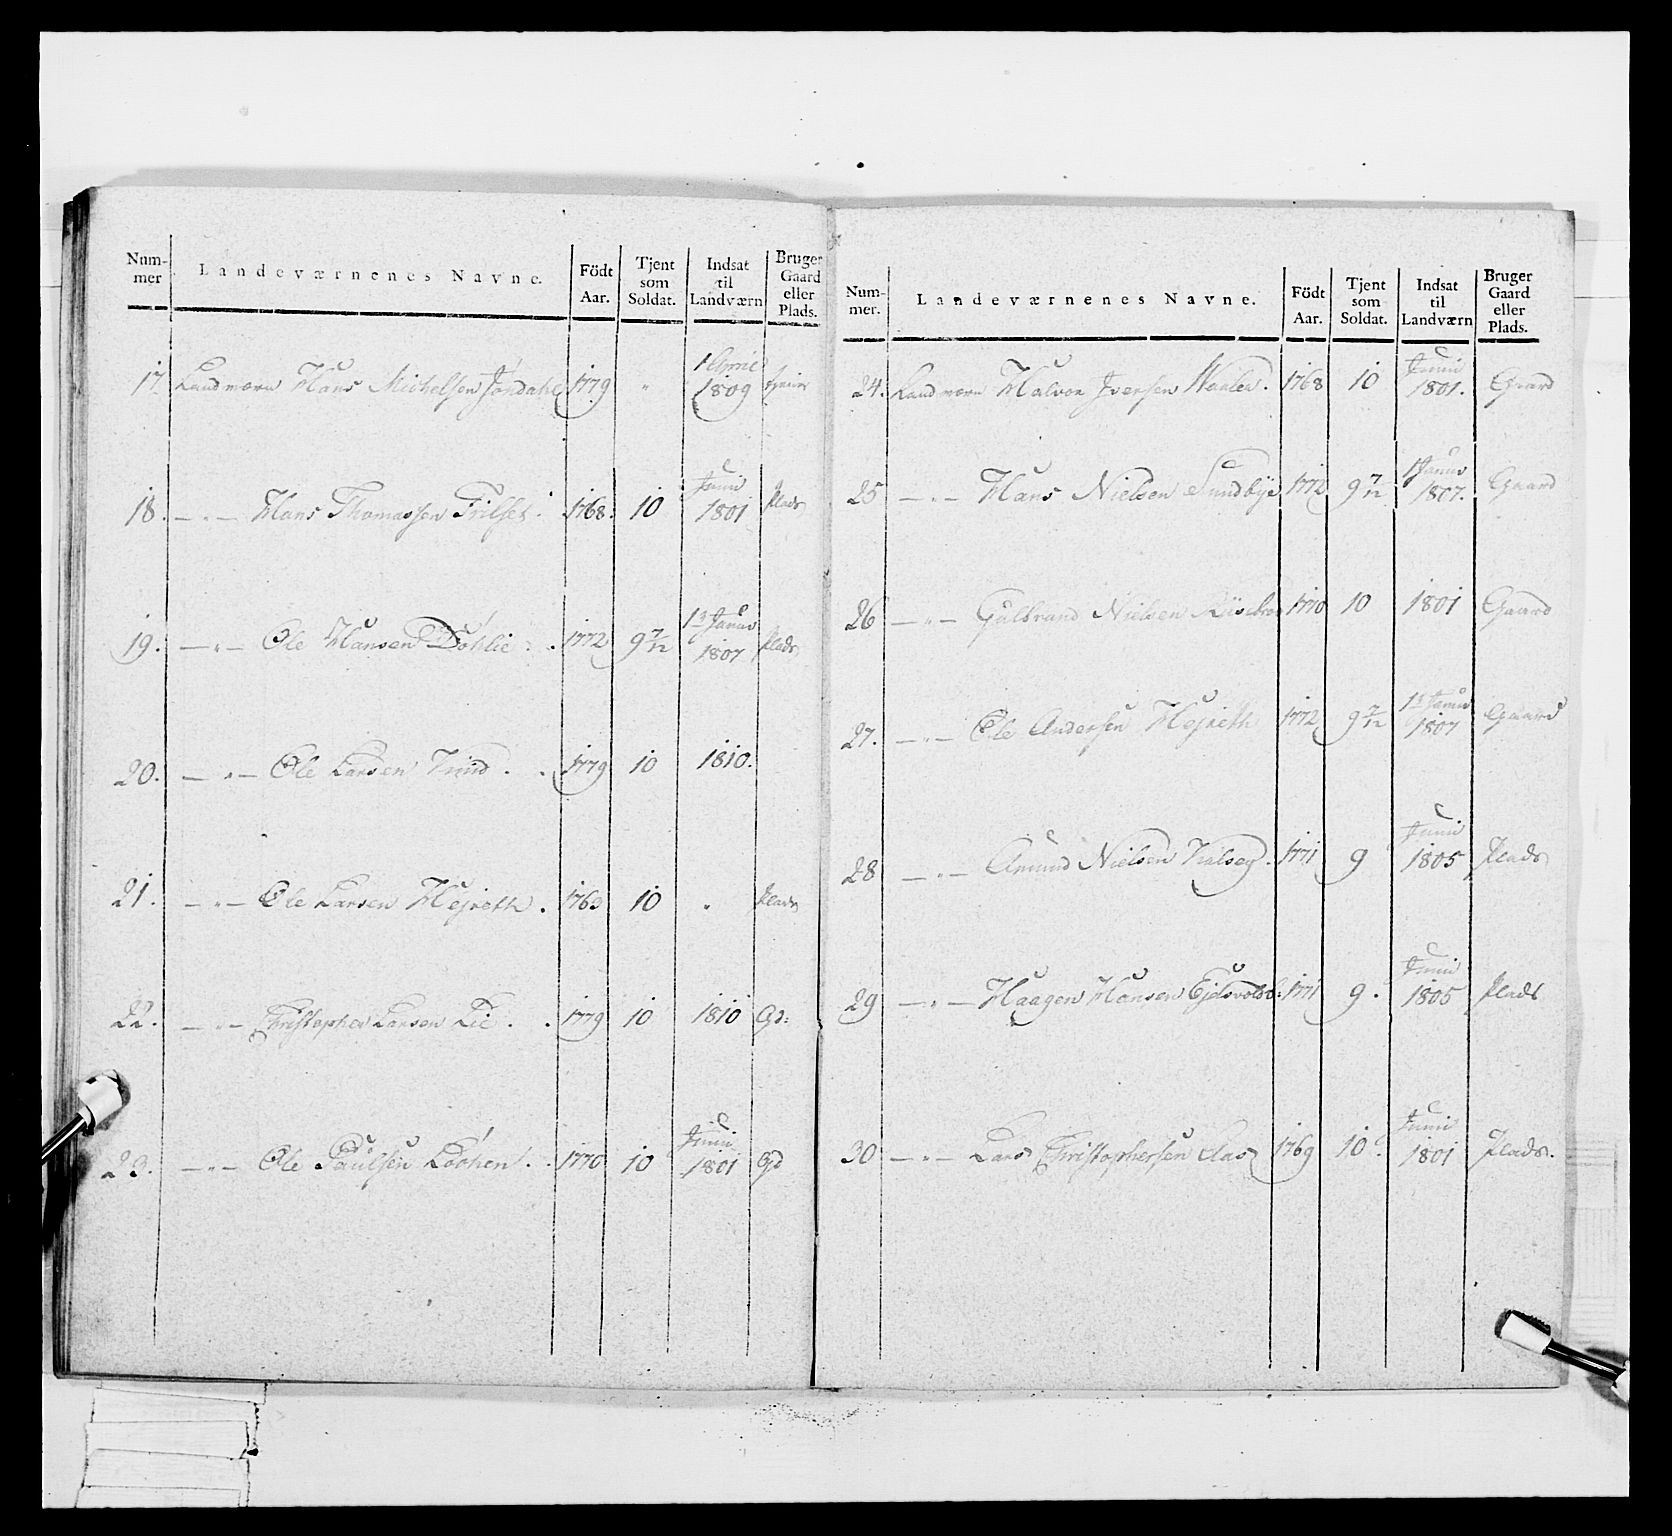 Num-
mer
Landeværnenes Navne.
Födt
Aar.
Tjent
som
Soldat.
Indsat
til
Landværn
Bruger
Gaard
eller
Plads.
17. Landværn Hans Michelsen 1779 " 1 April 1809
18. — " — Hans Thomassen Trilset. 1768. 10 Juni 1801 Plads
19. — " — Ole Hansen Döhlie . 1772 9 7/12 1 Januar 1807 Plads
20. — " — Ole Larsen . . 1779 10 1810.
21. — " — Ole Larsen Hejreth . 10 " Plads
22. — " — Christopher Larsen Lie . . 1779 10 1810 Gd:
23. — " — Ole Paulsen . . 1770 10 Juni 1801 Gd
Num-
mer.
Landeværnenes Navne.
Födt
Aar.
Tjent
som
Soldat.
Indsat
til
Landværn
Bruger
Gaard
eller
Plads.
24. Landværn Halvor Iversen 1768 10 Juni 1801. Gaard
25 — " — Hans Nielsen Sundbye 1772 9 7/12 1 Januar 1807. Gaard
26 — " — Gulbrand Nielsen 1770 10 1801 Gaard
27. — " — Ole Andersen Hejreth 1772 9 7/12 1 Januar 1807 Gaard
28 — " — Amund Nielsen . 1771 9 Juni 1805 Plads
29 — " — Haagen Hansen 1771 9. Juni 1805 Plads
30 — " — Lars Christophersen Aas 1769 10. Juni 1801 Plads.